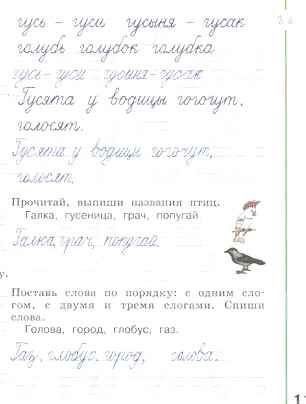 гусь – гуси гусыня – гусак
голубь голубок голубка
гусь – гуси гусыня – гусак
Гусята у водицы гогочут,
голосят.
Гусята у водицы гогочут,
голосят.
Прочитай, выпиши названия птиц.
Галка, гусеница, грач, попугай
Галка, грач, попугай.
у.
Поставь слова по порядку: с одним сло-
гом, с двумя и тремя слогами. Спиши
слова.
Голова, город, глобус, газ.
Газ, глобус, город, голова.